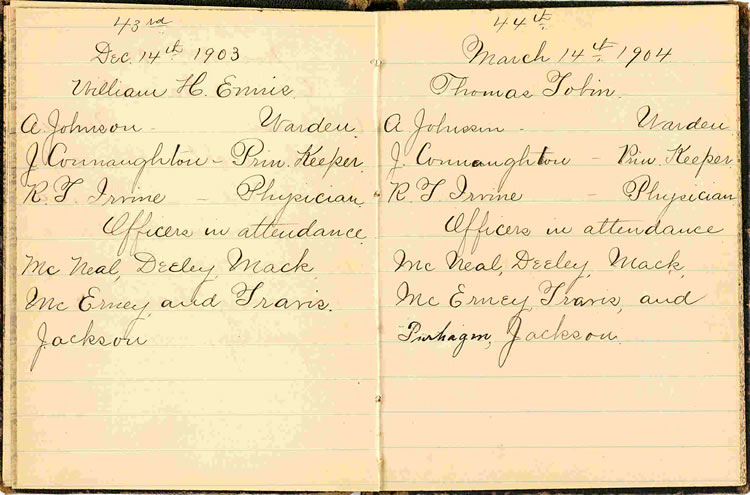 43rd
Dec. 14th 1903
William H. Ennis.
A. Johnson - Warden.
J Connaughton - Prin. Keeper.
R. T. Irvine - Physician.
Officers in attendance.
Mc Neal, Deeley, Mack
Mc Erney, and Travis.
Jackson
44th
March 14th 1904
Thomas Tobin.
A Johnson - Warden
J Connaughton - Prin. Keeper.
R. T Irvine - Physician
Officers in attendance
Mc Neal, Deeley, Mack,
Mc Erney, Travis, and
Jackson.